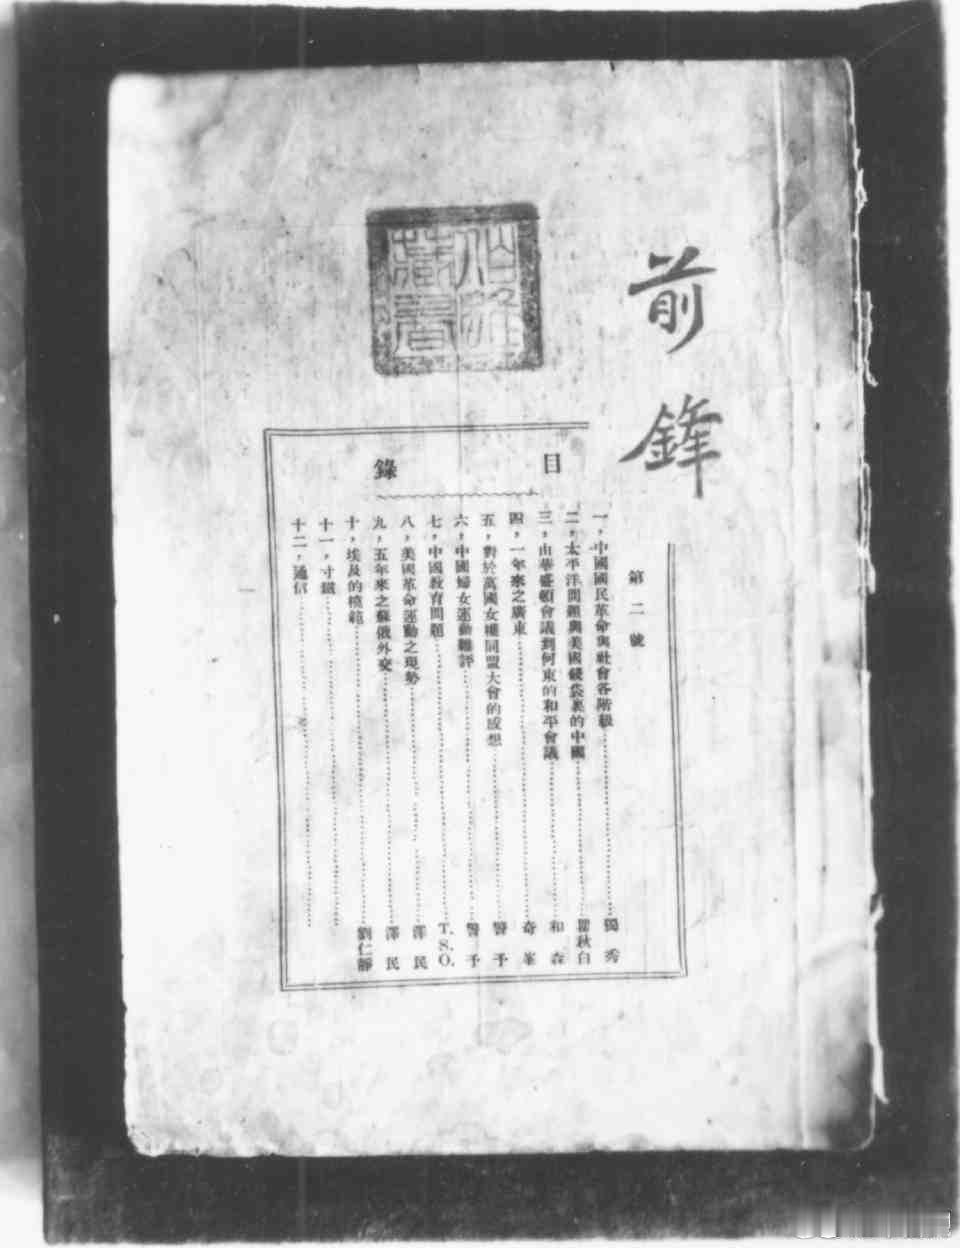 前鋒
第二號
目錄
一，中國國民革命與社會各階級……獨秀
二，太平洋問題與美國錢袋裏的中國……瞿秋白
三，由華盛頓會議到何東的和平會議……和森
四，一年來之廣東……奇峯
五，對於萬國女權同盟大會的感想……警予
六，中國婦女運動雜評……警予
七，中國教育問題……T.S.O.
八，美國革命運動之現勢……澤民
九，五年來之蘇俄外交……澤民
十，埃及的模範……劉仁靜
十一，寸鐵……
十二，通信……
藏書